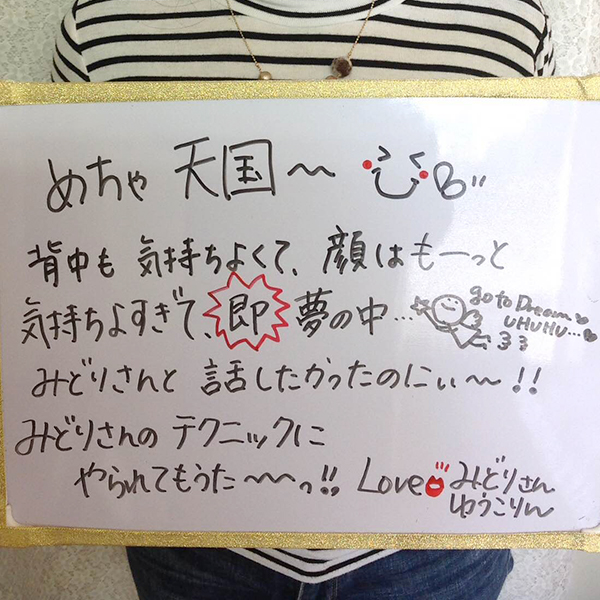 めちゃ 天国〜
背中も 気持ちよくて、顔はもーっと
気持ちよすぎて、即 夢の中…
go to Dream
UHUHU…
みどりさんと 話したかったのにぃ〜!!
みどりさんの テクニックに
やられてもうた〜〜っ!! Love みどりさん
ゆうこりん